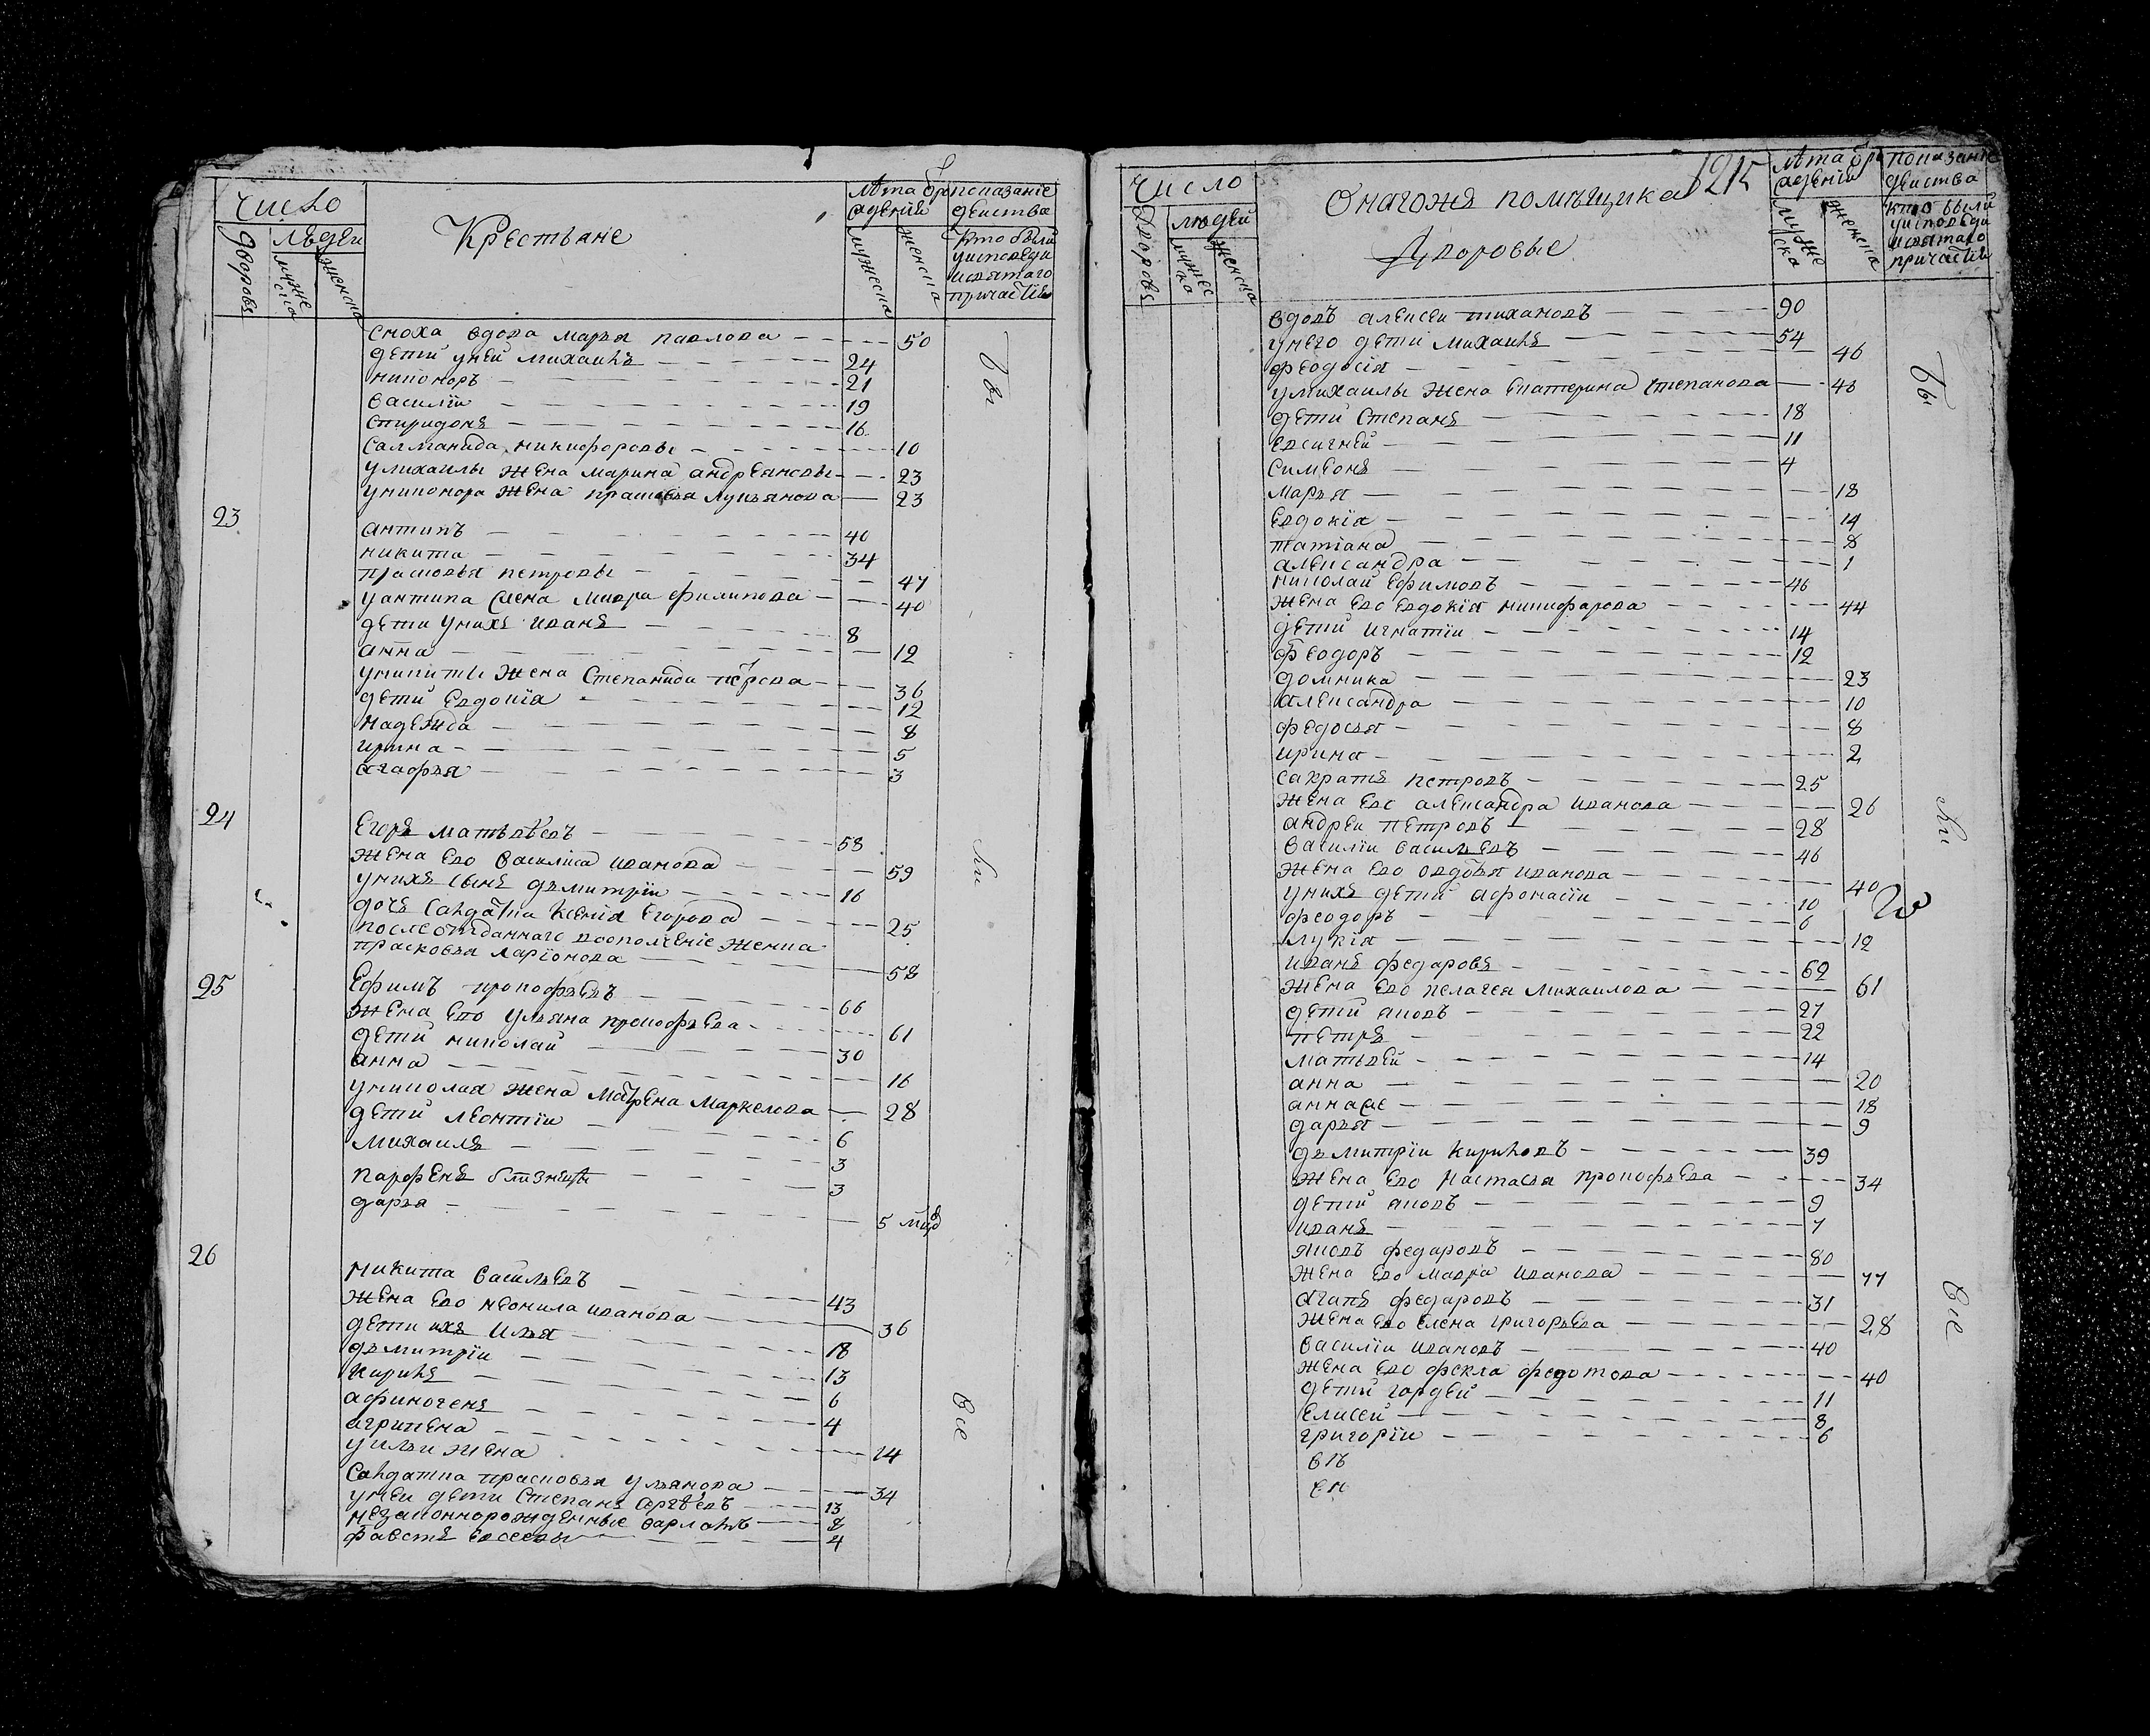 Число
дворовъ
людеи
мужеска
женска
Крестьяне
лѣта от рождения
мужеска
женска
показаніе действа
кто были
у исповеди
и святаго
причастия
сноха вдова марья павлова 50
дети у ней михаилъ 24
никоноръ 21
василіи 19
спиридонъ 16
саламанида никифоровы 10
у михаилы жена марина андреянова 23
у никонора жена прасковья лукьянова 23
23
антипъ 40
никита 34
прасковья петровы 47
у антипа жена мавра филипова 40
дети у нихъ иванъ 8
анна 12
у никиты жена степанида петрова 36
дети евдокіа 12
надежда 8
ирина 5
агафья 3
24
егоръ матвѣевъ 58
жена ево василиса иванова 59
у нихъ сынъ дьмитріи 16
дочь салдатка ксеніа егорова 25
после отъданнаго в ополчение женка
прасковья ларіонова 58
25
ефимъ прокофьевъ 66
жена ево ульяна прокофьева 61
дети николаи 30
анна 16
у николая жена матрена маркелова 28
дети леонтіи 6
михаилъ 3
парфенъ близнецы 3
дарья 5 мцов
26
никита васильевъ 43
жена ево неонила иванова 36
дети ихъ илья 18
дьмитріи 13
кирилъ 6
афиногенъ 4
агрипена 14
у ильи жена
салдатка прасковья ульянова 34
у неи дети степанъ сергѣевъ 13
незаконнорожденные варлатъ 8
фавстъ евсеевы 4
Бы
ли
все
1215
Число
дворовъ
людей
мужеска
женска
Онагожъ помѣщика
Дворовые
лѣта от рождения
мужеска
женска
показаніе действа
кто были
у исповеди
и святаго
причастия
вдовъ алексеи тихановъ 90
у него дети михаилъ 54
феодосія 46
у михаилы жена екатерина степанова 43
дети степанъ 18
евсигней 11
симеонъ 4
марья 18
евдокіа 14
татіана 8
александра 1
николай ефимовъ 46
жена ево евдокіа никифарова 44
дети игнатіи 14
феодоръ 12
домника 23
александра 10
федосья 8
ирина 2
сакратъ петровъ 25
жена ево александра иванова 26
андреи петровъ 28
василіи васильевъ 46
жена ево авдотья иванова 40
у нихъ дети афонасіи 10
феодоръ 6
лукіа 12
иванъ федаровъ 62
жена ево пелагея михаилова 61
дети яковъ 27
петръ 22
матвѣй 14
анна 20
анна же 18
дарья 9
дьмитріи кириловъ 39
жена ево настасья прокофьева 34
дети яковъ 9
иванъ 7
яковъ федаровъ 80
жена ево мавра иванова 77
агапъ федаровъ 31
жена ево елена григорьева 28
василіи ивановъ 40
жена ево фекла федотова 40
дети гордей 11
елисей 8
григоріи 6
Бы
ли
все